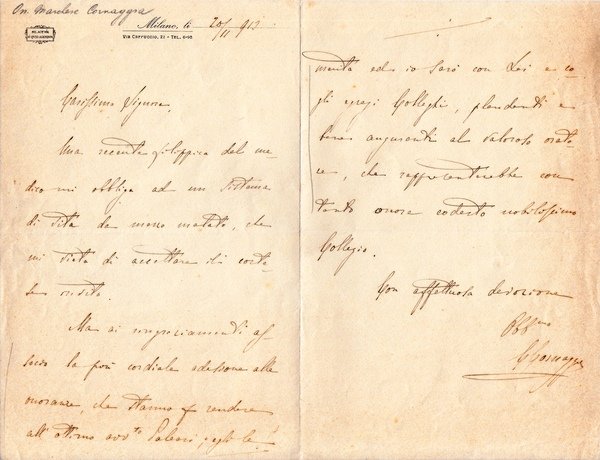 On. Marchese Cornaggia
Milano, li 20/11 913
Via Cappuccio, 21 - Tel. 6-95
Carissimo Signore,
Una recente filippica del me-
dico mi obbliga ad un sistema
di vita da mezzo malato, che
mi vieta di accettare il corte-
se invito.
Ma ai ringraziamenti ag-
giungo la più cordiale adesione alle
onoranze, che stanno per rendere
all'ottimo avv.to
mente ed io sarò con Lei e co-
gli egregi Colleghi, plaudenti e
bene auguranti al valoroso orato-
re, che rappresenterebbe con
tanto onore codesto nobilissimo
Collegio.
Con affettuosa devozione
Obb.mo
CCornaggia